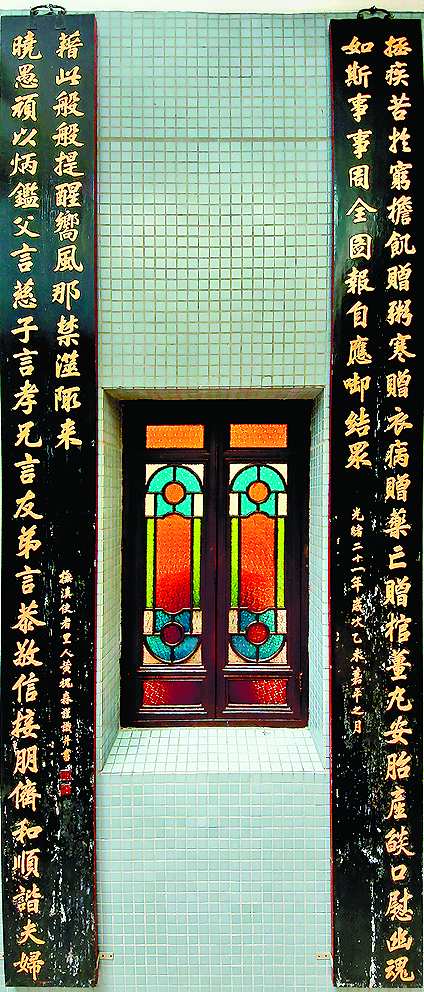 拯疾苦扵窮檐飢贈粥寒贈衣病贈藥亡贈棺薑丸安胎產燄口慰幽魂
如斯事事周全圖報自應啣結眾
光緒二十一年歲次乙未嘉平之月
曉愚頑以炳鑑父言慈子言孝兄言友弟言恭敬信接朋儕和順諧夫婦
藉此般般提醒嚮風那禁溢陬来
撫滇使者里人黃槐森謹撰并書